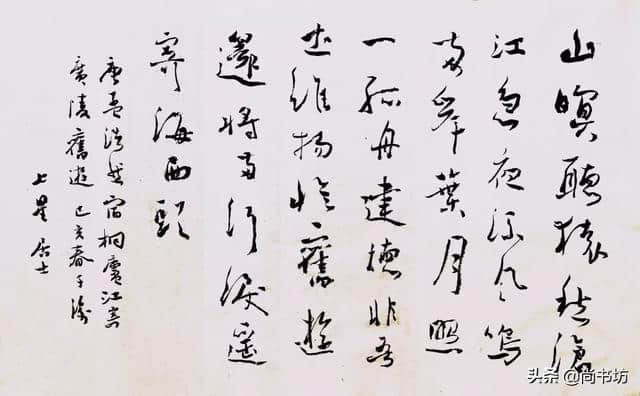 山暝聽猿愁滄
江急夜流風鳴
兩岸葉月照
一孤舟建德非吾
土維揚憶舊遊
還將兩行淚遙
寄海西頭
唐孟浩然宿桐廬江寄
廣陵舊遊 己亥春
居士
头条 @尚书坊